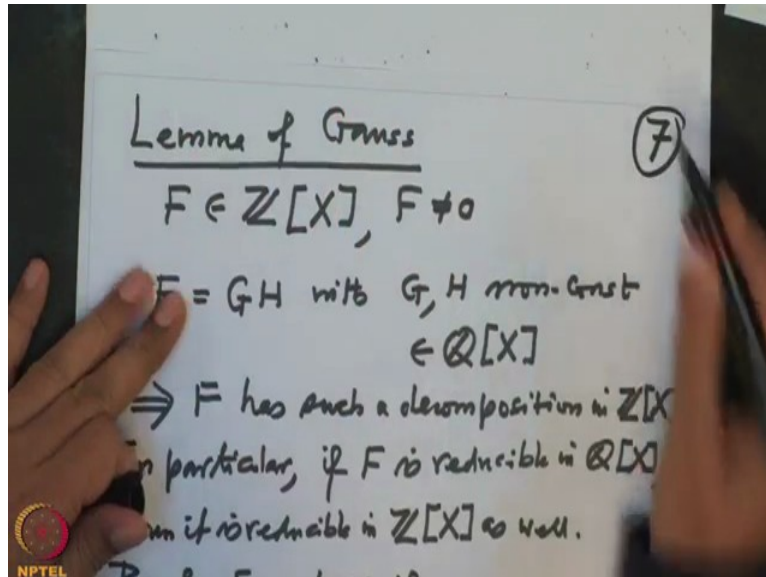 Lemma of Gauss
7
F ∈ ℤ[X], F ≠ 0
F = GH with G, H non-const
∈ ℚ[X]
⇒ F has such a decomposition in ℤ[X
In particular, if F is reducible in ℚ[X]
it is reducible in ℤ[X] as well.
NPTEL